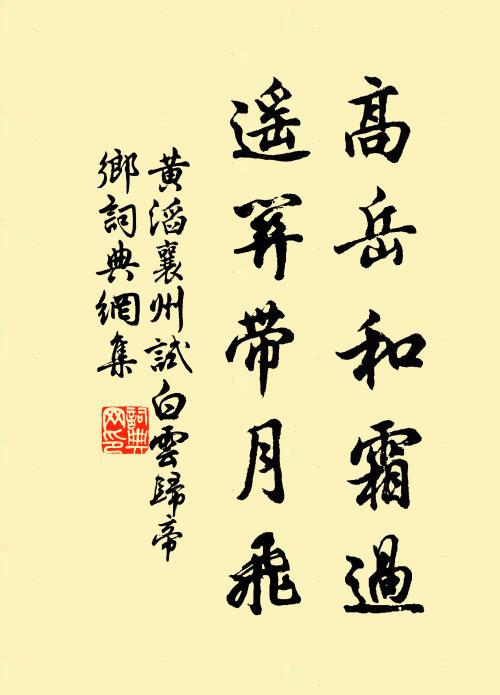 高岳和霜過
遥關帶月飛
黃滔襄州試白雲歸帝
鄉詞典網集
詞典网印